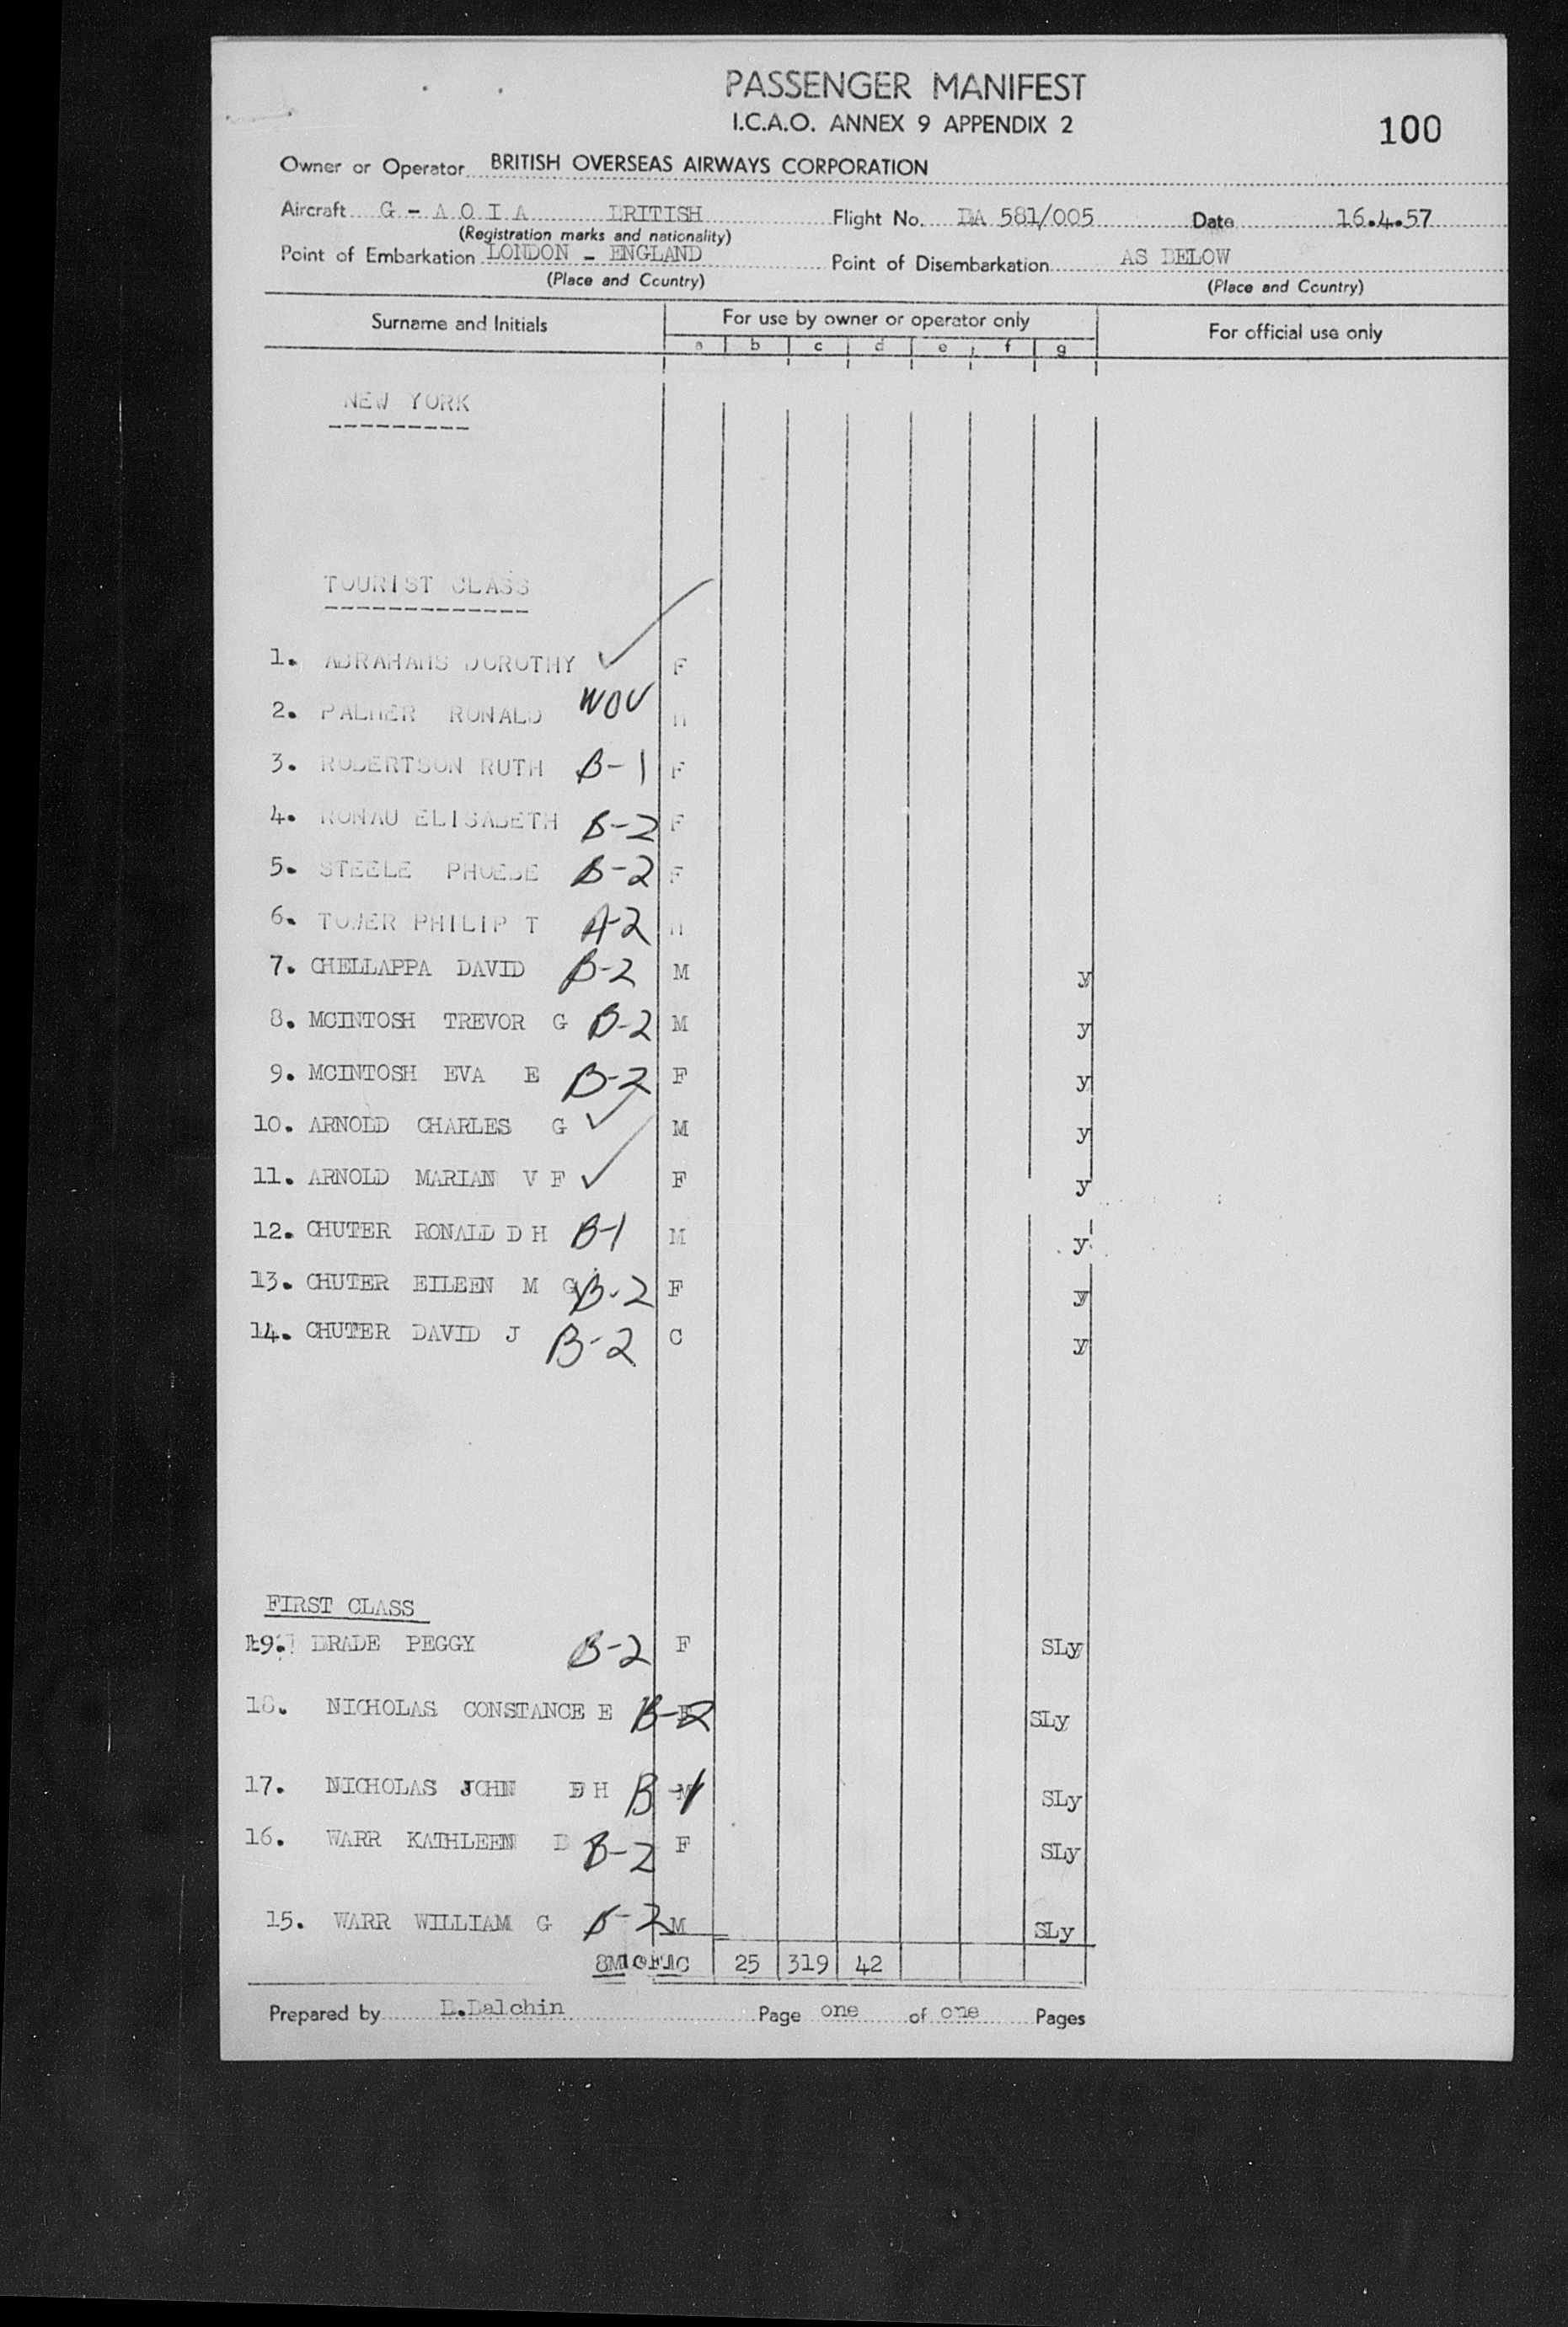 PASSENGER MANIFEST
I.C.A.O. ANNEX 9 APPENDIX 2
100
Owner or Operator BRITISH OVERSEAS AIRWAYS CORPORATION
Aircraft G - A O I A BRITISH Flight No. BA 581/005 Date 16.4.57
(Registration marks and nationality)
Point of Embarkation LONDON - ENGLAND Point of Disembarkation AS BELOW
(Place and Country) (Place and Country)
Surname and Initials For use by owner or operator only For official use only
a b c d e f g
NEW YORK
TOURIST CLASS
1. ABRAHAMS DOROTHY ✓ F
2. PALMER RONALD WOV M
3. ROBERTSON RUTH B-1 F
4. RONAU ELISABETH B-2 F
5. STEELE PHOEBE B-2 F
6. TOWER PHILIP T A-2 M
7. CHELLAPPA DAVID B-2 M y
8. MCINTOSH TREVOR G B-2 M y
9. MCINTOSH EVA E B-2 F y
10. ARNOLD CHARLES G ✓ M y
11. ARNOLD MARIAN V F ✓ F y
12. CHUTER RONALD D H B-1 M y
13. CHUTER EILEEN M G B-2 F y
14. CHUTER DAVID J B-2 C y
FIRST CLASS
19. BRADE PEGGY B-2 F SLy
18. NICHOLAS CONSTANCE E B-2 F SLy
17. NICHOLAS JOHN H B-1 M SLy
16. WARR KATHLEEN B-2 F SLy
15. WARR WILLIAM G B-2 M SLy
8M10F1C 25 319 42
Prepared by B.Balchin Page one of one Pages